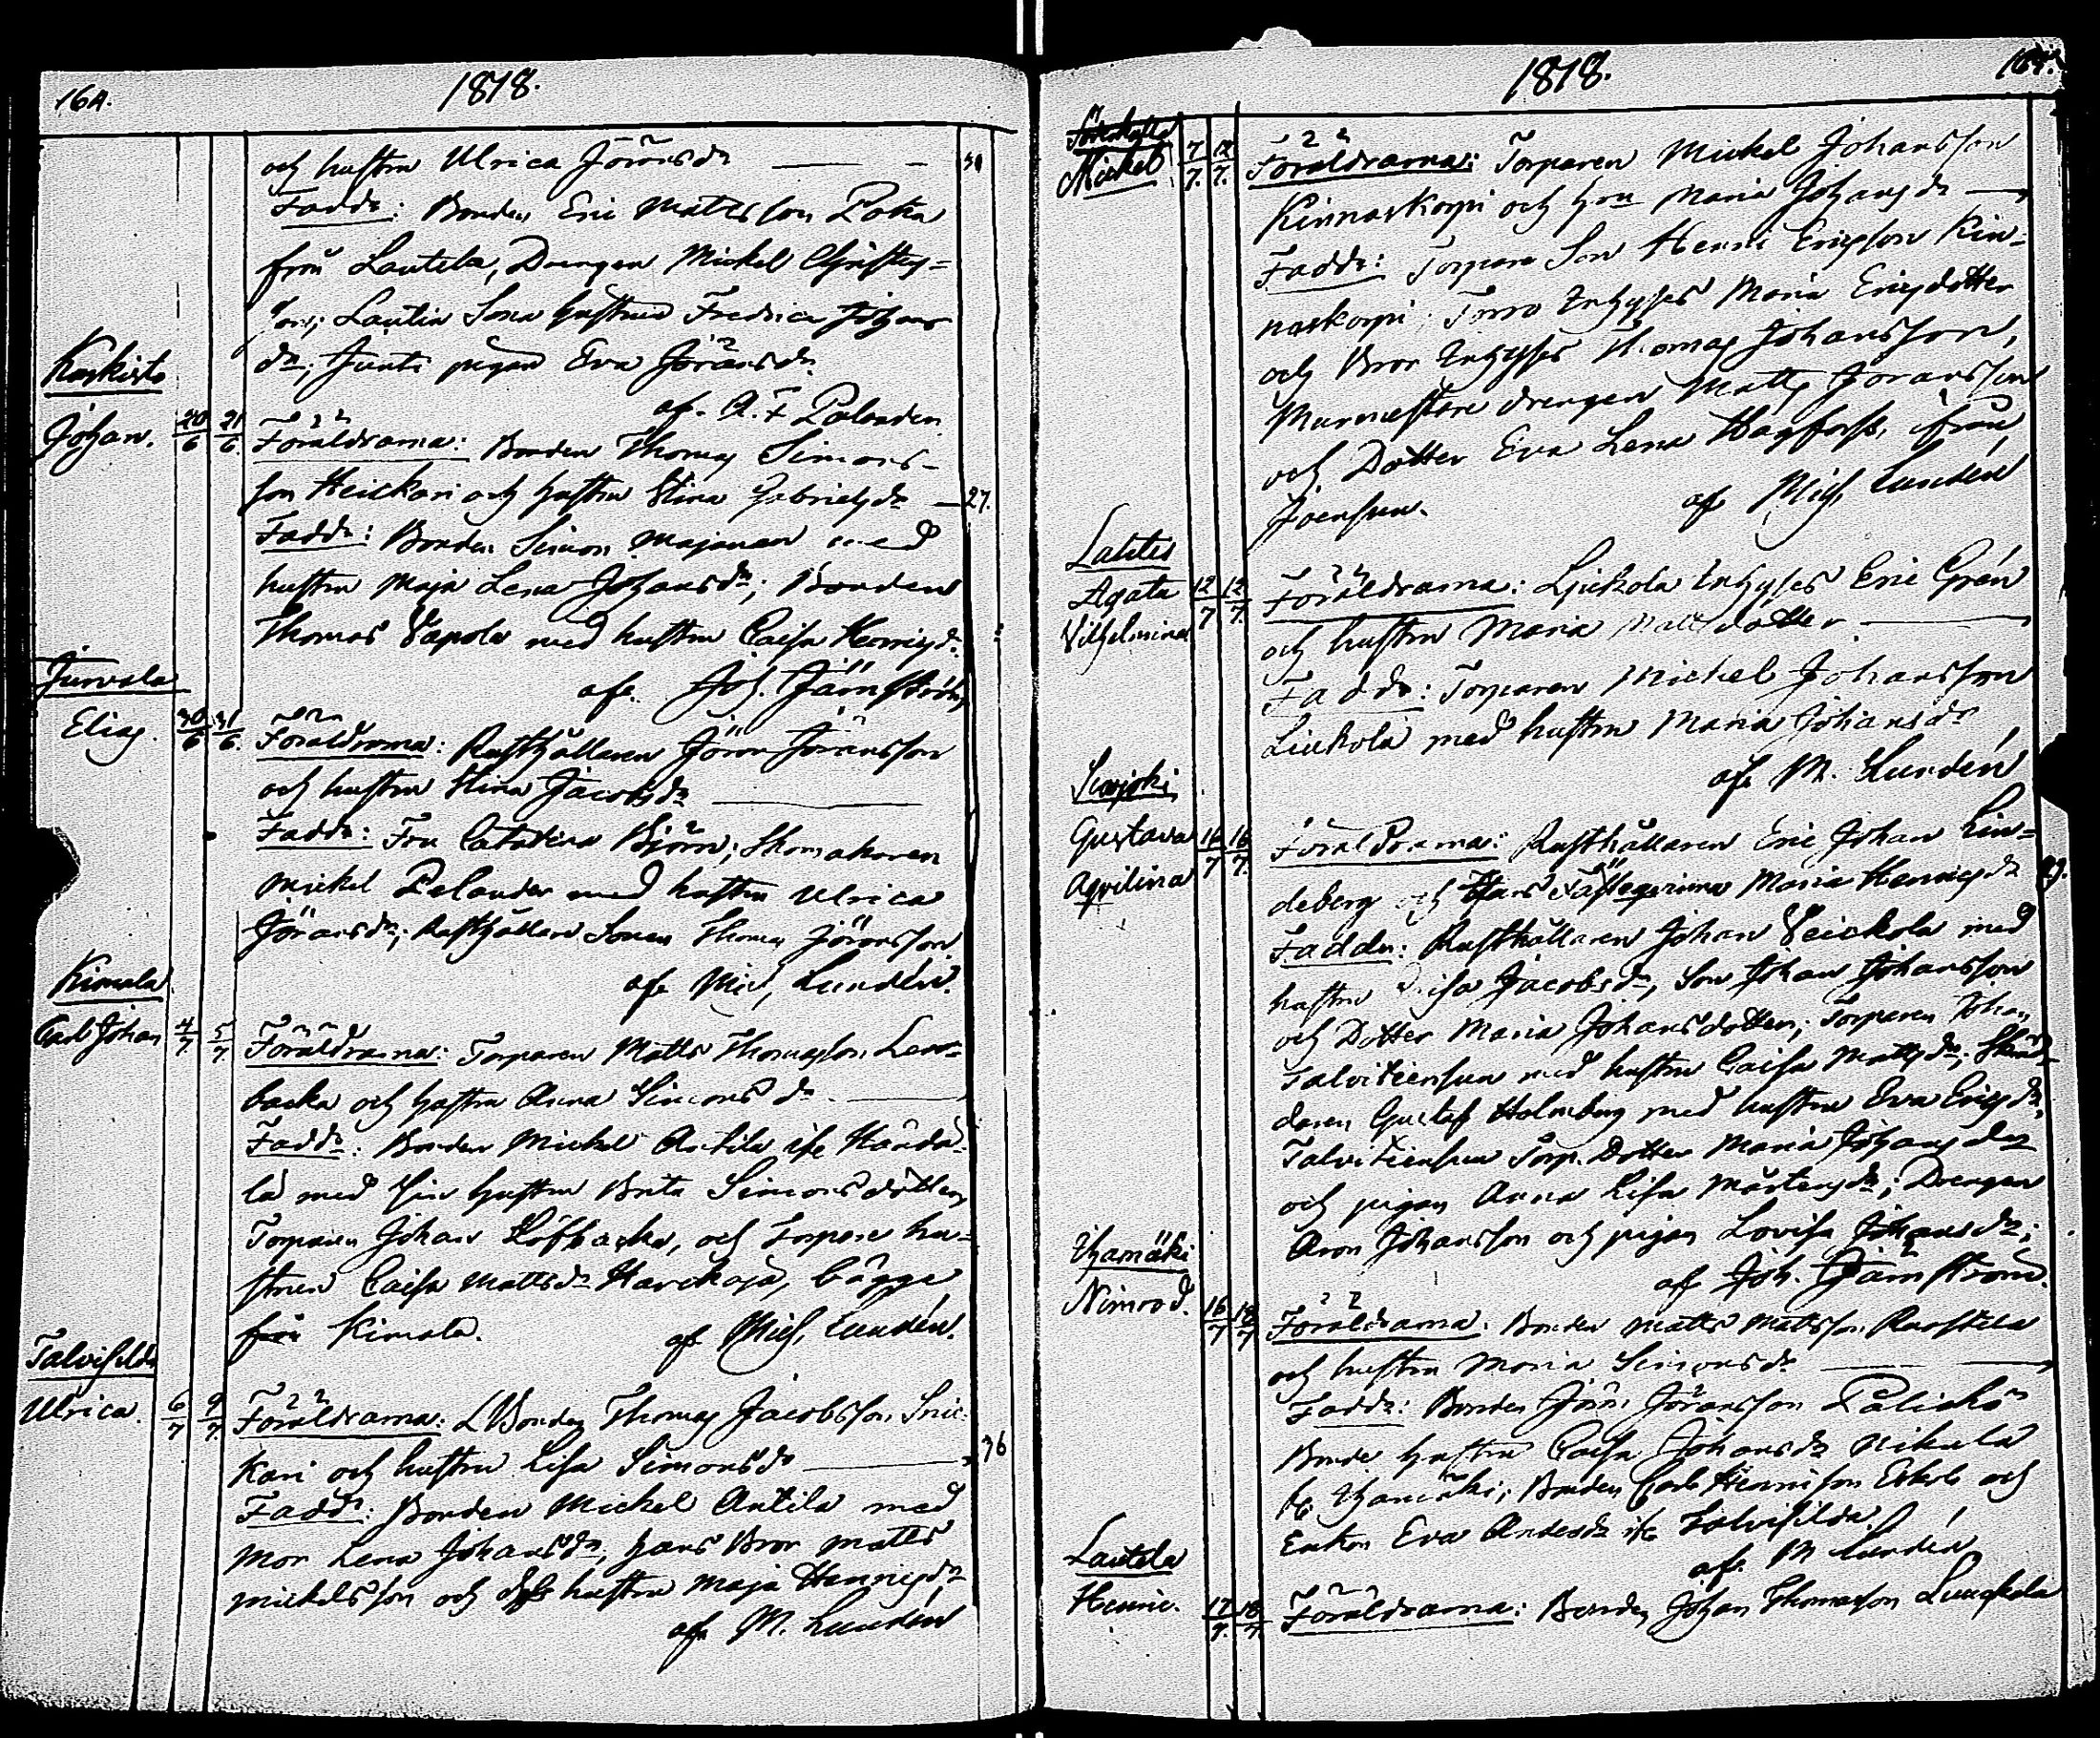 164.
1818.
och hustru Ulrica Jöransdr 31
Faddr: Bonden Eric Mattsson Pota
från Lautela, Drengen Mickel Christers=
son; Lautia Sona hustrun Fredrica Johans
dr; Junti pigan Eva Jöransdr.
af. A. F. Polander
Koskisto
Johan. 20/6 21/6 Föräldrarna: Bonden Thomas Simons-
son Heickari och hustru Stina Gabrielsdr 27.
Faddr: Bonden Simon Majanen med
hustru Maja Lena Johansdr; Bonden
Thomas Vapola med hustru Caisa Henricsdr.
af. Joh. Järnström
Jurvala
Elias. 30/6 31/6. Föräldrarna: Rusthållaren Jöran Jöransson
och hustru Stina Jacobsdr
Faddr: Fru Catarina Björn; Skomakaren
Mickel Polander med hustru Ulrica
Jöransdr; Rusthållare Sonen Thomas Jöransson
af Mich, Lundén.
Kimola.
Carl Johan 4/7 5/7 Föräldrarna: Torparen Matts Thomasson Lef-
backa och hustru Anna Simonsdr.
Faddr: Bonden Mickel Antila ifr Handa-
la med sin hustru Brita Simonsdotter,
Torparen Johan Löfbacka, och torpare hu-
strun Caisa Mattsdr Harckoja, bägge
från Kimola.
af Mich, Lundén.
Talvisilda
Ulrica. 6/7 9/7. Föräldrarna: L Bonden Thomas Jacobsson Snic-
kari och hustru Lisa Simonsdr 36
Faddr: Bonden Mickel Antila med
Mor Lena Johansdr, hans Bror Matts
Mickelsson och dess hustru Maja Henricsdr
af M. Lundén
1818.
Mickel 7/7. 12/7. Föräldrarna: Torparen Mickel Johansson
Kinnaskorpi och hru Maria Johansdr
Faddr: Torpare Son Henric Ericsson Kin-
naskorpi; Inhyses Maria Ericsdotter
och Bror Inhyses Thomas Johansson,
Murmestare drengen Matts Jöransson
och Dotter Eva Lena Hagfors, ifrån
Joensuu. af Mich Lundén
Lahtis
Agata
Vilhelmina 12/7 12/7. Föräldrarna: Liuckola Inhyses Eric Grén
och hustru Maria Mattsdotter.
Faddr: Torparen Mickel Johansson
Liukola med hustru Maria Johansdr
af M. Lundén
Seesjoki
Gustava
Aqvilina 14/7 16/7. Föräldrarna: Rusthållaren Eric Johan Lin=
deberg och Maria Henricsdr 29.
Faddr: Rusthållaren Johan Veickola med
hustru Lisa Jacobsdr, Son Johan Johansson
och Dotter Maria Johansdotter; Torparen Johan
Talvitiensuu med hustru Caisa Mattsdr; Skräd-
daren Gustaf Holmberg med hustru Eva Ericsdr,
Talvitiensuu Torp. Dotter Maria Johansdr
och pigan Anna Lisa Mårtensdr; Drengen
Aron Johansson och pigan Lovisa Johansdr;
af Joh. Järnström.
Uhamäki
Nimrod. 16/7 18/7 Föräldrarna: Bonden Matts Mattsson Raustela
och hustru Maria Simonsdr
Faddr: Bonden Jöran Jöransson
Bonde hustru Caisa Johansdr Nikula
fr Uhamäki; Bonden Carl Henricsson Erkola och
Enkan Eva Andersdr ifr Talvisilda.
af. M Lundén
Lautela
Henric. 17/7. 18/7. Föräldrarna: Bonden Johan Thomasson Luuckola